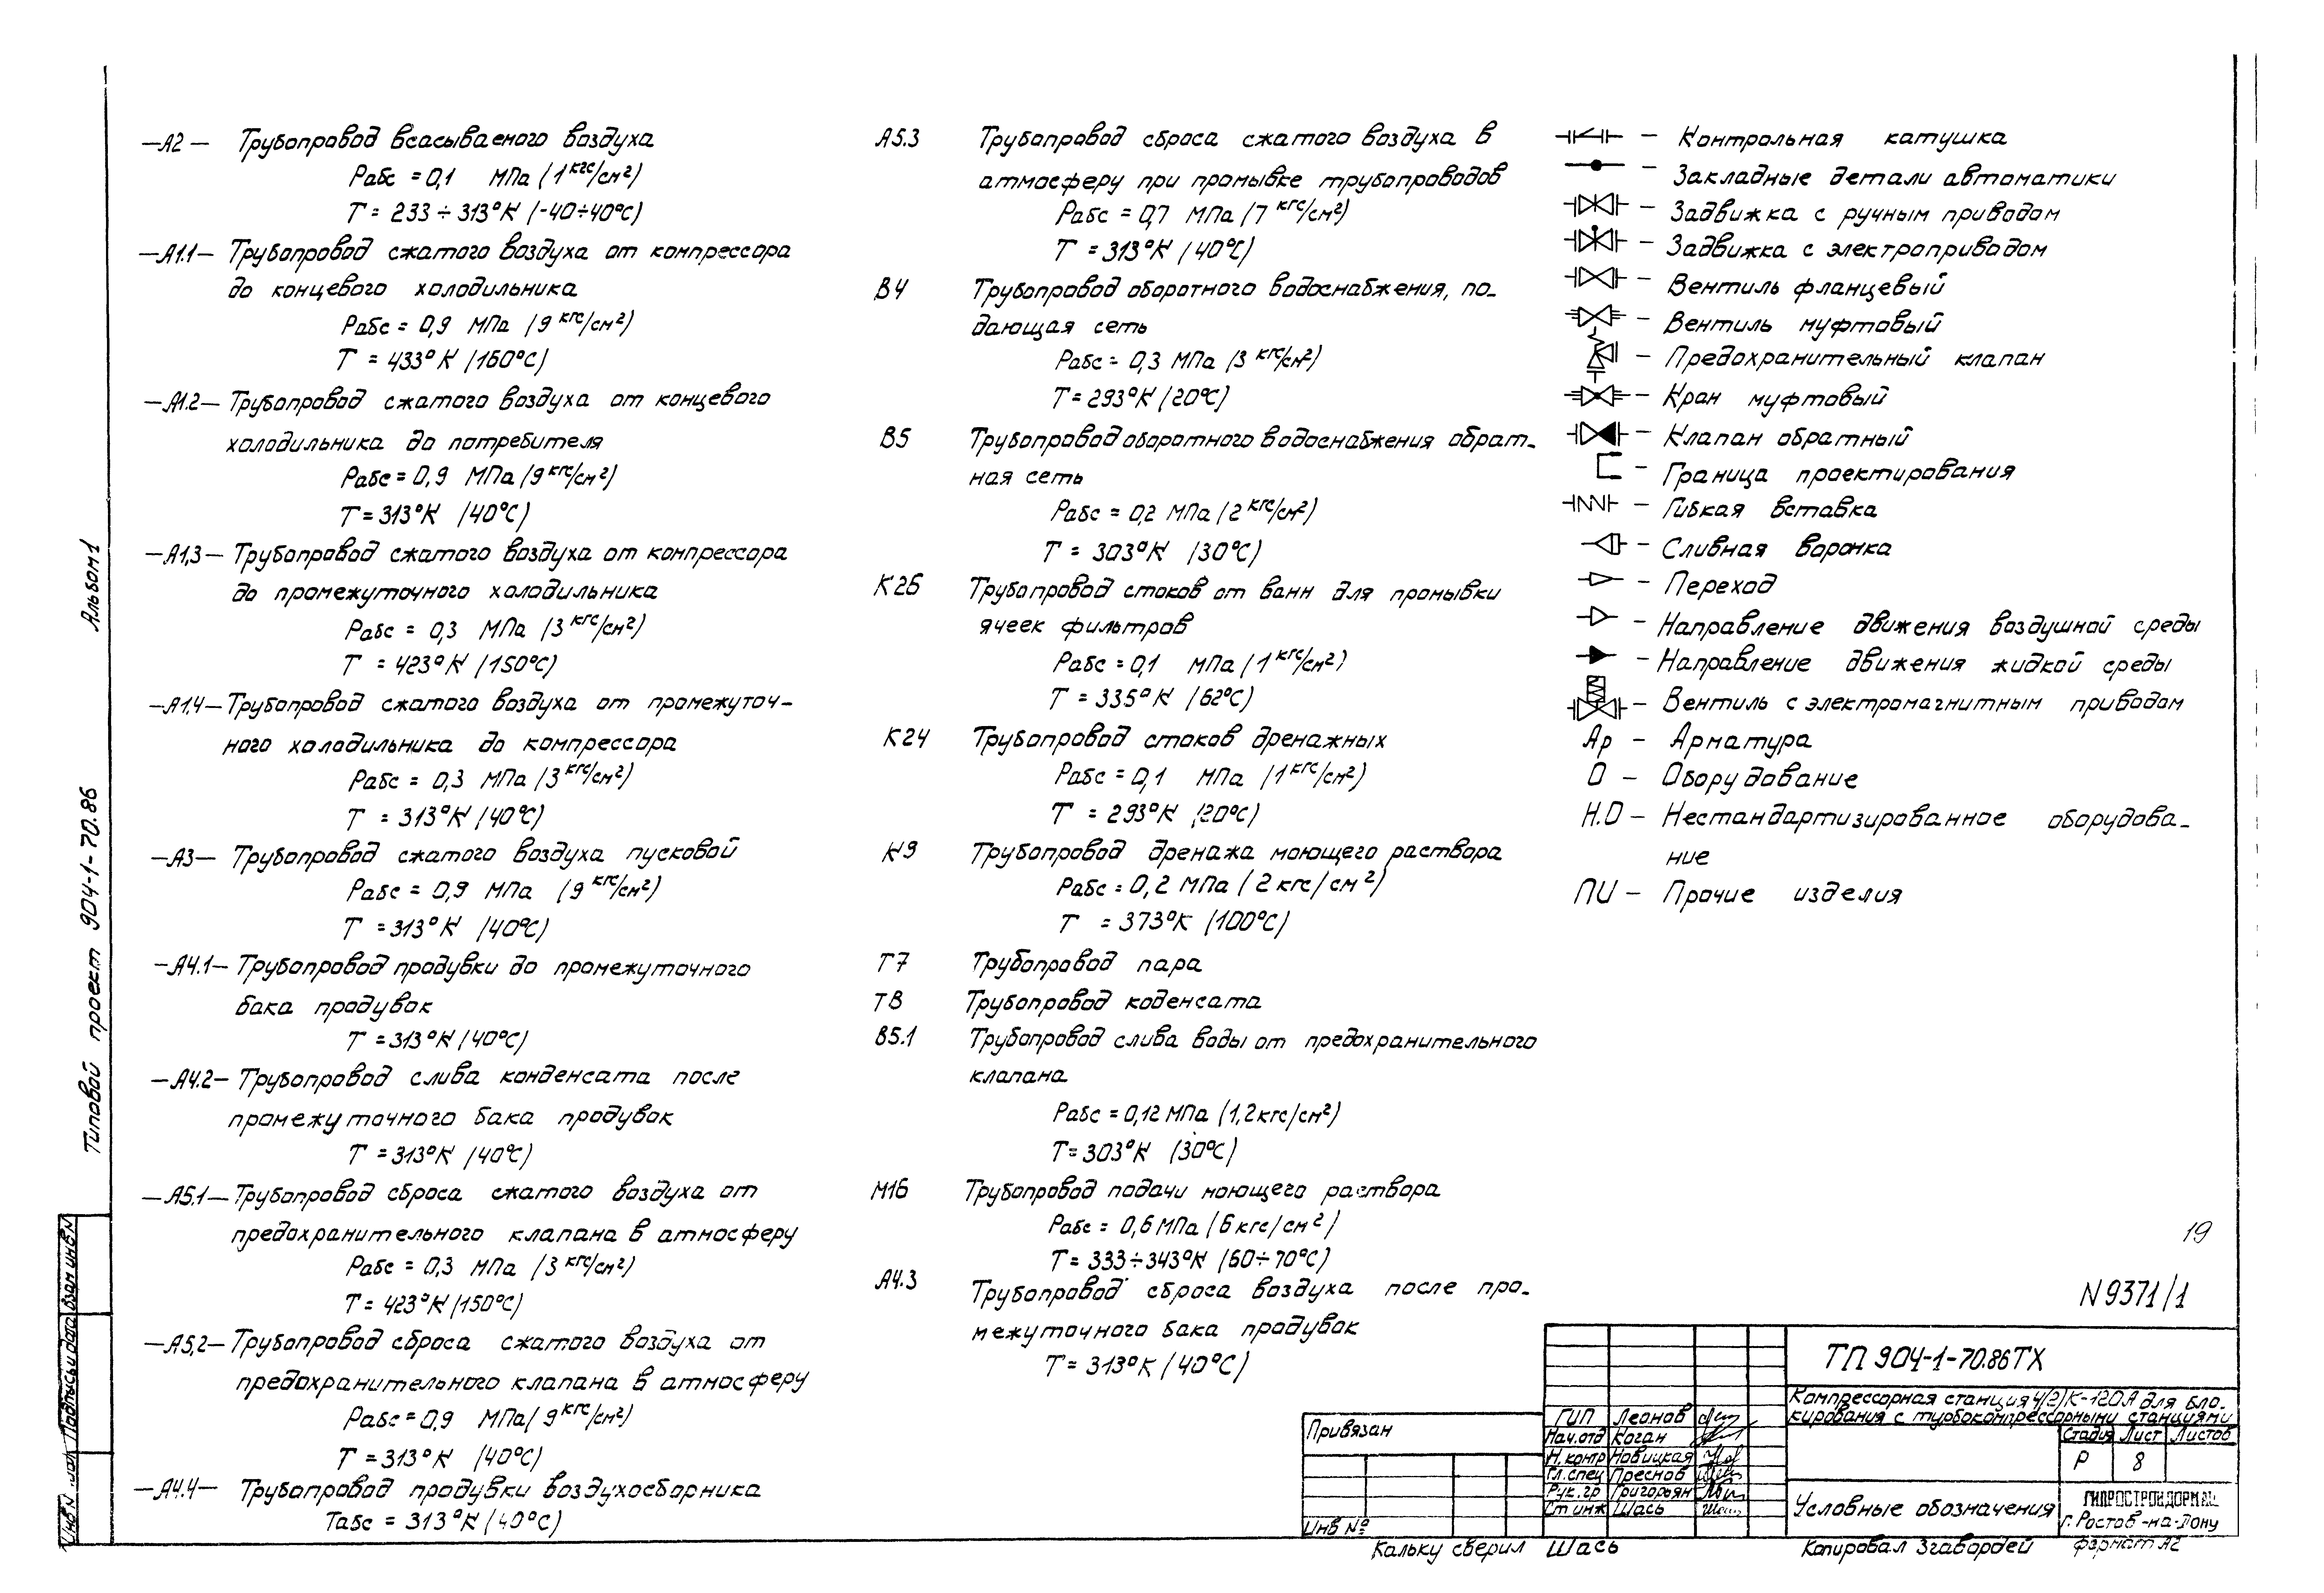 —А2— Трубопровод всасываемого воздуха
Рабс = 0,1 МПа (1 кгс/см²)
Т = 233 ÷ 313°К (-40÷40°С)
—А1.1— Трубопровод сжатого воздуха от компрессора
до концевого холодильника
Рабс = 0,9 МПа (9 кгс/см²)
Т = 433°К (160°С)
—А1.2— Трубопровод сжатого воздуха от концевого
холодильника до потребителя
Рабс = 0,9 МПа (9 кгс/см²)
Т = 313°К (40°С)
—А1,3— Трубопровод сжатого воздуха от компрессора
до промежуточного холодильника
Рабс = 0,3 МПа (3 кгс/см²)
Т = 423°К (150°С)
—А1,4— Трубопровод сжатого воздуха от промежуточ-
ного холодильника до компрессора
Рабс = 0,3 МПа (3 кгс/см²)
Т = 313°К (40°С)
—А3— Трубопровод сжатого воздуха пусковой
Рабс = 0,9 МПа (9 кгс/см²)
Т = 313°К (40°С)
—А4.1— Трубопровод продувки до промежуточного
бака продувок
Т = 313°К (40°С)
—А4.2— Трубопровод слива конденсата после
промежуточного бака продувок
Т = 313°К (40°С)
—А5.1— Трубопровод сброса сжатого воздуха от
предохранительного клапана в атмосферу
Рабс = 0,3 МПа (3 кгс/см²)
Т = 423°К (150°С)
—А5,2— Трубопровод сброса сжатого воздуха от
предохранительного клапана в атмосферу
Рабс = 0,9 МПа (9 кгс/см²)
Т = 313°К (40°С)
—А4.4— Трубопровод продувки воздухосборника
Табс = 313°К (40°С)
А5.3 Трубопровод сброса сжатого воздуха в
атмосферу при промывке трубопроводов
Рабс = 0,7 МПа (7 кгс/см²)
Т = 313°К (40°С)
В4 Трубопровод оборотного водоснабжения, по-
дающая сеть
Рабс = 0,3 МПа (3 кгс/см²)
Т = 293°К (20°С)
В5 Трубопровод оборотного водоснабжения обрат-
ная сеть
Рабс = 0,2 МПа (2 кгс/см²)
Т = 303°К (30°С)
К26 Трубопровод стоков от ванн для промывки
ячеек фильтров
Рабс = 0,1 МПа (1 кгс/см²)
Т = 335°К (62°С)
К24 Трубопровод стоков дренажных
Рабс = 0,1 МПа (1 кгс/см²)
Т = 293°К (20°С)
К9 Трубопровод дренажа моющего раствора
Рабс = 0,2 МПа (2 кгс/см²)
Т = 373°К (100°С)
Т7 Трубопровод пара
Т8 Трубопровод коденсата
В5.1 Трубопровод слива воды от предохранительного
клапана
Рабс = 0,12 МПа (1,2 кгс/см²)
Т = 303°К (30°С)
М16 Трубопровод подачи моющего раствора
Рабс = 0,6 МПа (6 кгс/см²)
Т = 333÷343°К (60÷70°С)
А4.3 Трубопровод сброса воздуха после про-
межуточного бака продувок
Т = 313°К (40°С)
— Контрольная катушка
— Закладные детали автоматики
— Задвижка с ручным приводом
— Задвижка с электроприводом
— Вентиль фланцевый
— Вентиль муфтовый
— Предохранительный клапан
— Кран муфтовый
— Клапан обратный
— Граница проектирования
— Гибкая вставка
— Сливная воронка
— Переход
— Направление движения воздушной среды
— Направление движения жидкой среды
— Вентиль с электромагнитным приводом
Ар — Арматура
О — Оборудование
Н.О — Нестандартизированное оборудова-
ние
ПИ — Прочие изделия
Альбом 1
Типовой проект 904-1-70.86
Взам инв N
Подпись и дата
Инв N
19
N 9371/1
ТП 904-1-70.86 ТХ
Компрессорная станция 4(2)К-120А для бло-
кирования с турбокомпрессорными станциями
Привязан
Инв №
ГИП Леонов
Нач.отд Коган
Н.контр Новицкая
Гл.спец Преснов
Рук.гр Григорьян
Ст инж Шась
Стадия Лист Листов
Р 8
Условные обозначения
ГИПРОСТРОЙДОРМАШ
г. Ростов-на-Дону
Кальку сверил Шась
Копировал Згавордей
формат А2